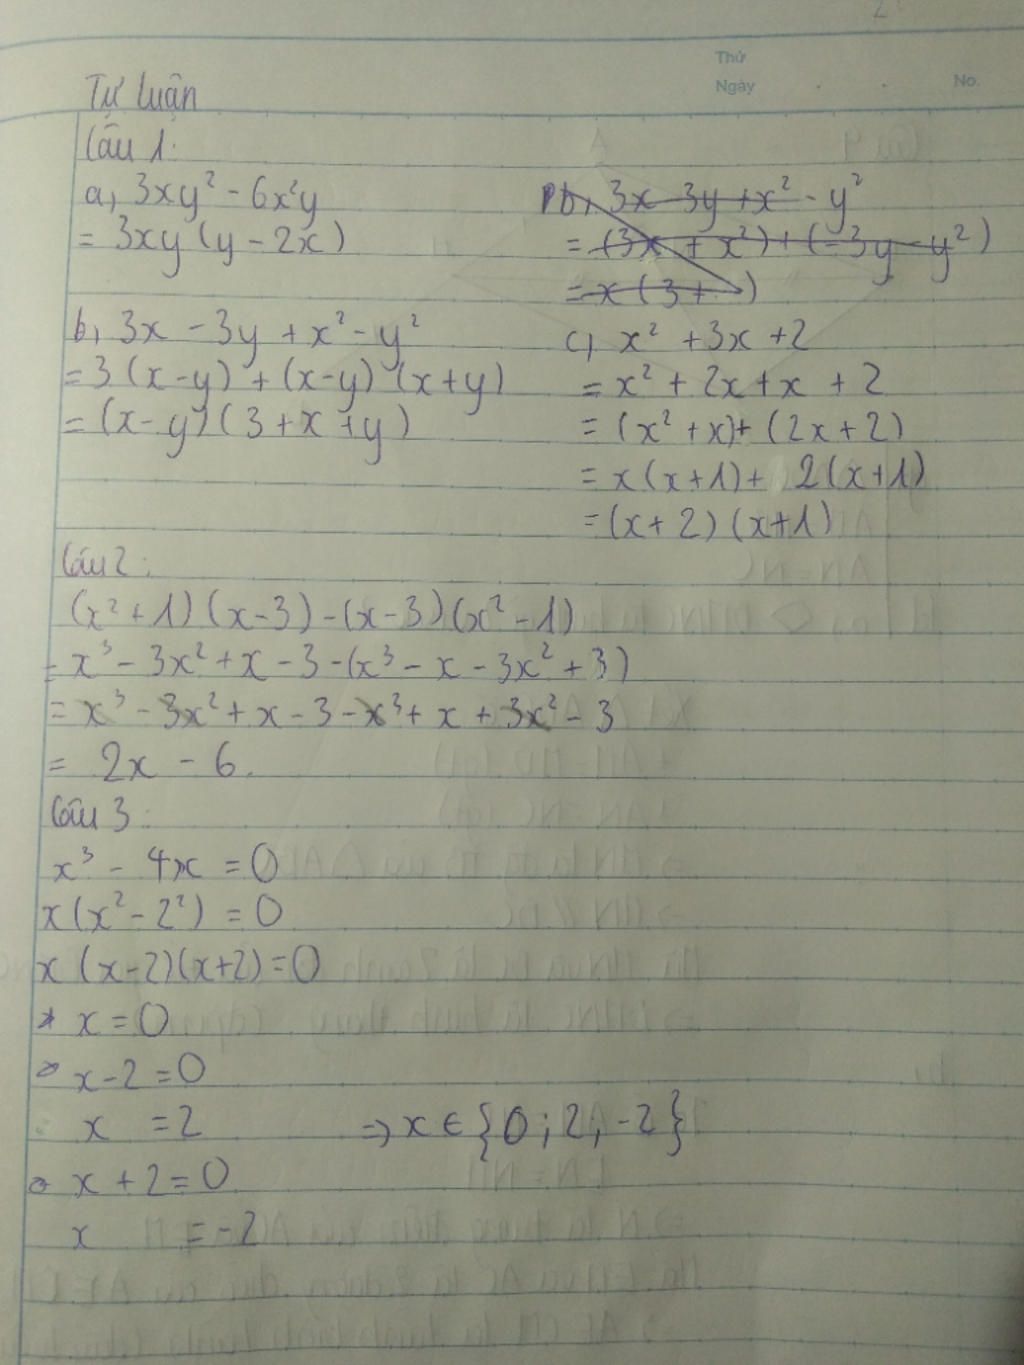 Thứ
Ngày
No.
Tự luận
Câu 1:
a, 3xy² - 6x²y
= 3xy(y - 2x)
b, 3x - 3y + x² - y²
= (3x + x²) + (-3y - y²)
= x(3 + )
b, 3x - 3y + x² - y²
= 3(x-y) + (x-y)(x+y)
= (x-y)(3+x+y)
c, x² + 3x + 2
= x² + 2x + x + 2
= (x² + x) + (2x + 2)
= x(x+1) + 2(x+1)
= (x+2)(x+1)
Câu 2:
(x²+1)(x-3) - (x-3)(x²-1)
= x³ - 3x² + x - 3 - (x³ - x - 3x² + 3)
= x³ - 3x² + x - 3 - x³ + x + 3x² - 3
= 2x - 6.
Câu 3:
x³ - 4x = 0
x(x² - 2²) = 0
x(x-2)(x+2) = 0
* x = 0
x - 2 = 0
x = 2
⇒ x ∈ {0; 2; -2}
x + 2 = 0
x = -2